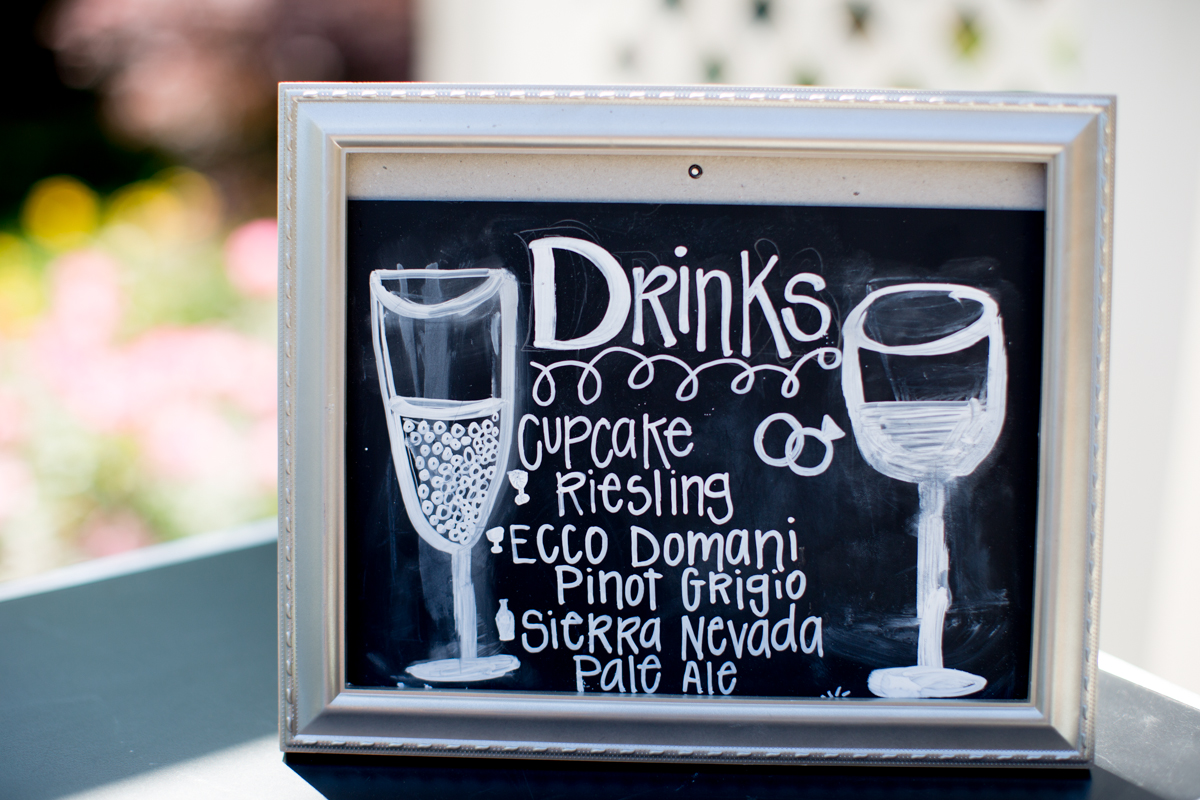 Drinks
Cupcake
Riesling
Ecco Domani
Pinot Grigio
Sierra Nevada
Pale Ale